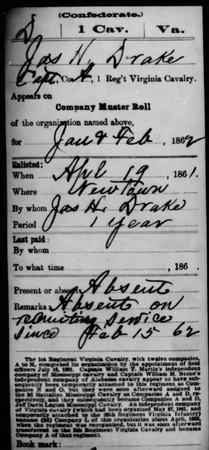 (Confederate.)
D | 1 Cav. | Va.
Jas H. Drake
Capt, Co. A, 1 Reg't Virginia Cavalry.
Appears on
Company Muster Roll
of the organization named above,
for Jan & Feb, 1862
Enlisted:
When Apl 19, 1861.
Where New Town
By whom Jas H. Drake
Period 1 year
Last paid:
By whom
To what time , 186 .
Present or absent Absent
Remarks: Absent on
recruiting service
since Feb 15 62
The 1st Regiment Virginia Cavalry, with twelve companies,
A to M, was completed by the appointment of its field
officers July 16, 1861. Captain William T. Martin's independent
company of Mississippi Cavalry and Captain William M.
independent company of Alabama cavalry appear to have
been temporarily attached to this regiment as Companies
and they soon afterward
Battalion Mississippi Cavalry as Companies A and D,
respectively, and they subsequently became Companies A and D,
Jeff Davis Legion Mississippi Cavalry. An independent company
of Virginia cavalry (which had been organized May
temporarily attached to the Regiment Virginia Infantry)
became (2d) Company of this regiment
when the regiment was reorganized, but it was soon afterward
transferred to the 5th Regiment Virginia Cavalry and became
Company of that regiment.
Book mark: